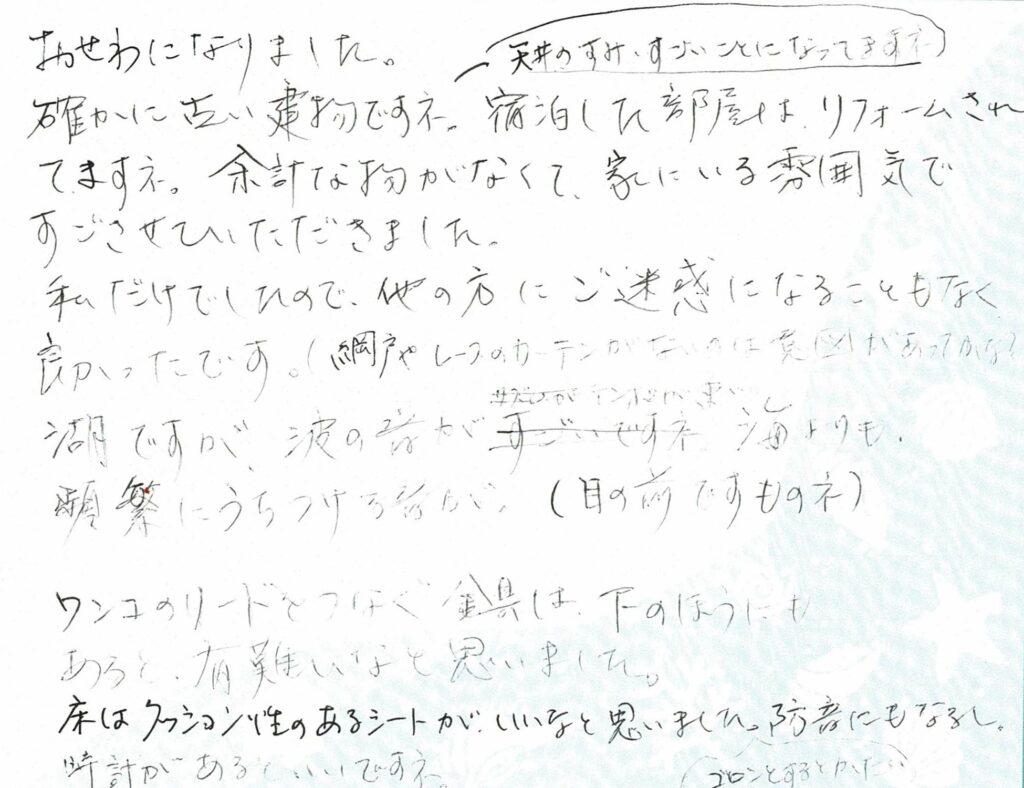 おせわになりました。
(天井のすみ、すごいことになってますネ)
確かに古い建物ですネ。宿泊した部屋は、リフォームされ
てますネ。余計な物がなくて、家にいる雰囲気で
すごさせていただきました。
私だけでしたので、他の方にご迷惑になることもなく
良かったです。(網戸やレースのカーテンがないのは意図があってかな?
テンポが
湖ですが、波の音がすごいですネ。海よりも、
頻繁にうちつける音が。(目の前ですものネ)
ワンコのリードをつなぐ金具は、下のほうにも
あると、有難いなと思いました。
床はクッション性のあるシートが、いいなと思いました。防音にもなるし。
時計があるといいですネ。
(ゴロンとするとかたい)